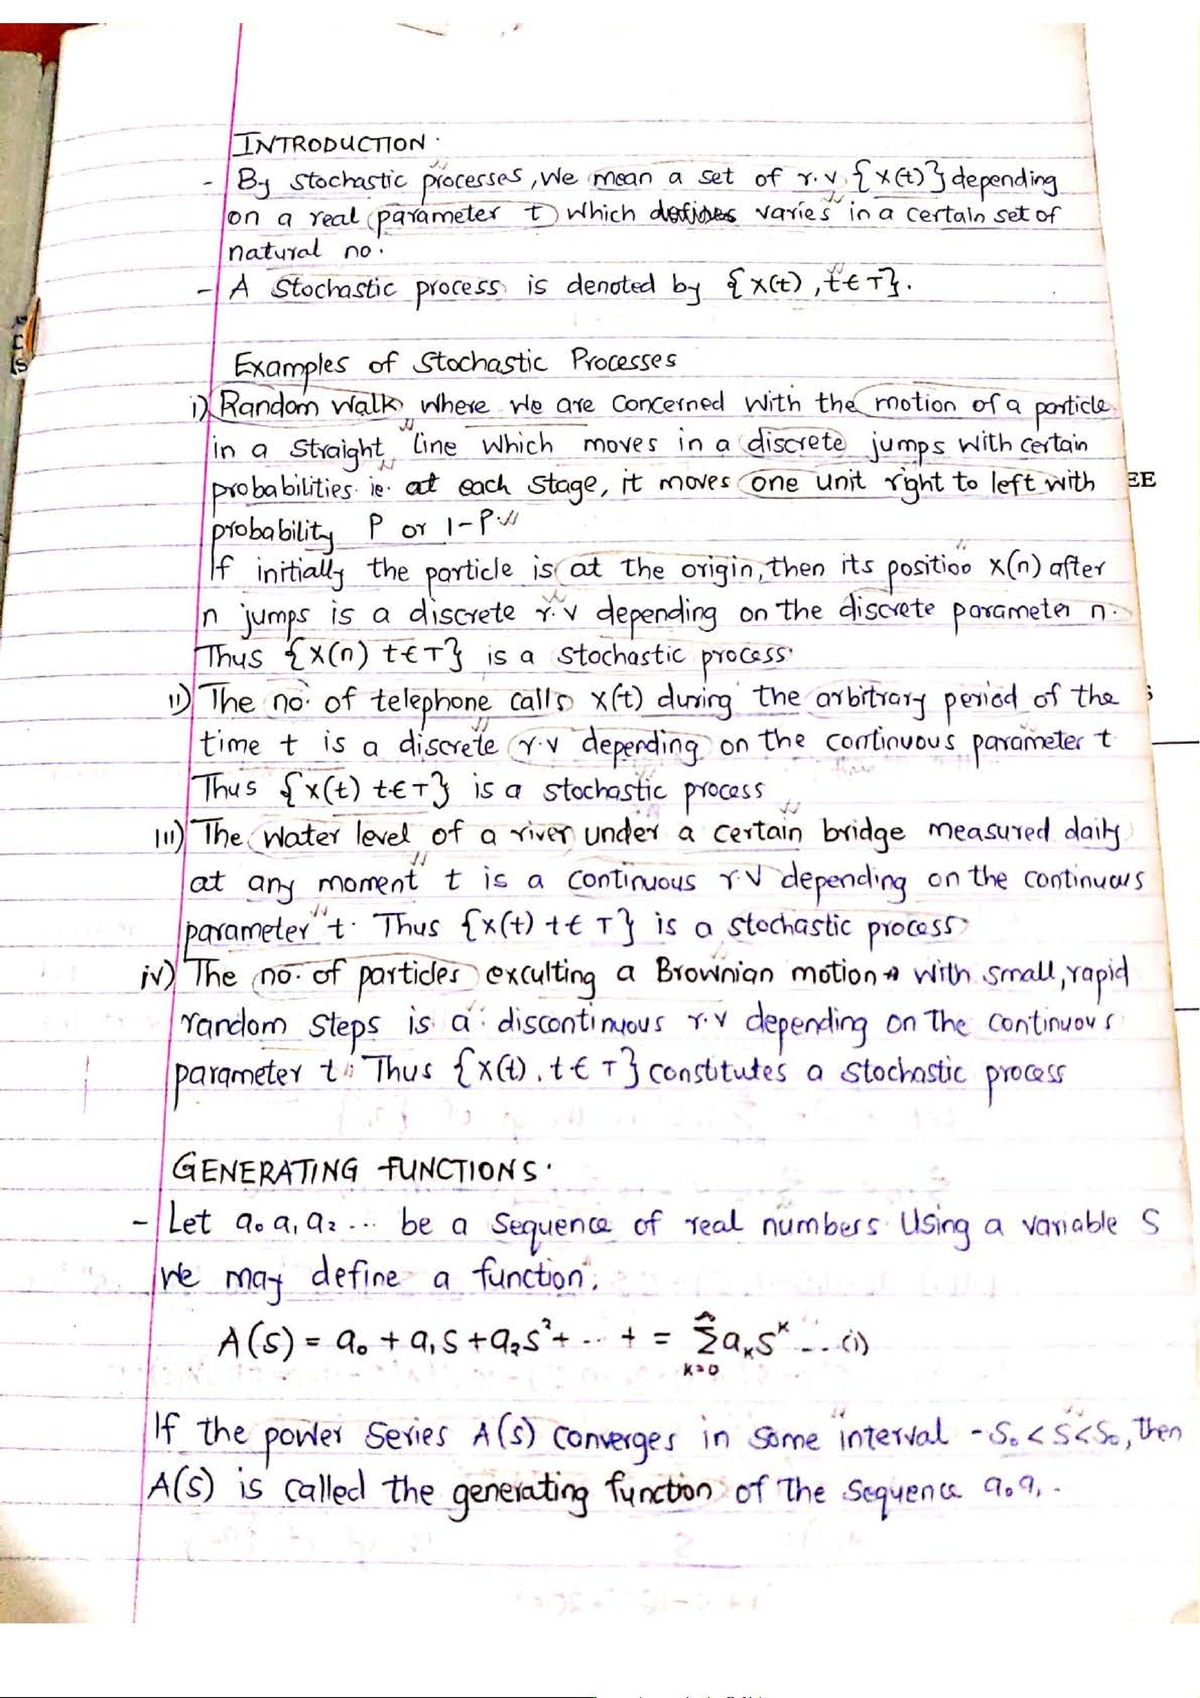 INTRODUCTION.
- By stochastic processes, we mean a set of r.v {x(t)} depending
on a real parameter t which varies in a certain set of
natural no.
- A stochastic process is denoted by {x(t), t∈T}.
Examples of Stochastic Processes
i) Random walk where we are concerned with the motion of a particle
in a straight line which moves in a discrete jumps with certain
probabilities. ie. at each stage, it moves one unit right to left with
EE
probability P or 1-P.
If initially the particle is at the origin, then its position x(n) after
n jumps is a discrete r.v depending on the discrete parameter n.
Thus {x(n) t∈T} is a stochastic process.
ii) The no. of telephone calls x(t) during the arbitrary period of the
time t is a discrete r.v depending on the continuous parameter t
Thus {x(t) t∈T} is a stochastic process
iii) The water level of a river under a certain bridge measured daily
at any moment t is a continuous r.v depending on the continuous
parameter t. Thus {x(t) t∈T} is a stochastic process
iv) The no. of particles exculting a Brownian motion with small, rapid
random steps is a discontinuous r.v depending on the continuous
parameter t. Thus {x(t), t∈T} constitutes a stochastic process
GENERATING FUNCTIONS.
- Let a₀ a₁ a₂ ... be a sequence of real numbers. Using a variable S
we may define a function.
A(S) = a₀ + a₁S + a₂S² + ... + = Σ aₖSᵏ ... (i)
k=0
If the power series A(S) converges in some interval -S₀ < S < S₀, then
A(S) is called the generating function of the sequence a₀ a₁ .